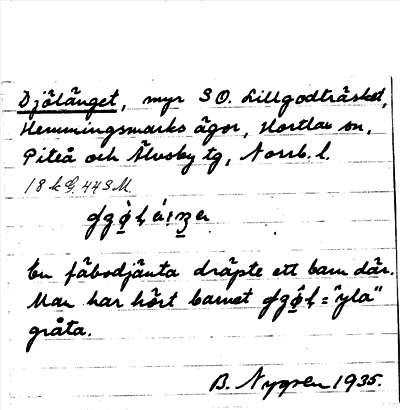 Djölänget, myr S O. Lillgodträsket,
Hemmingsmarks ägor, Hortlax sn,
Piteå och Älvsby tg, Norrb. l.
18 k G. 443 M.
En fäbodjänta dräpte ett barn där.
Man har hört barnet = "yla"
gråta.
B. Nygren 1935.